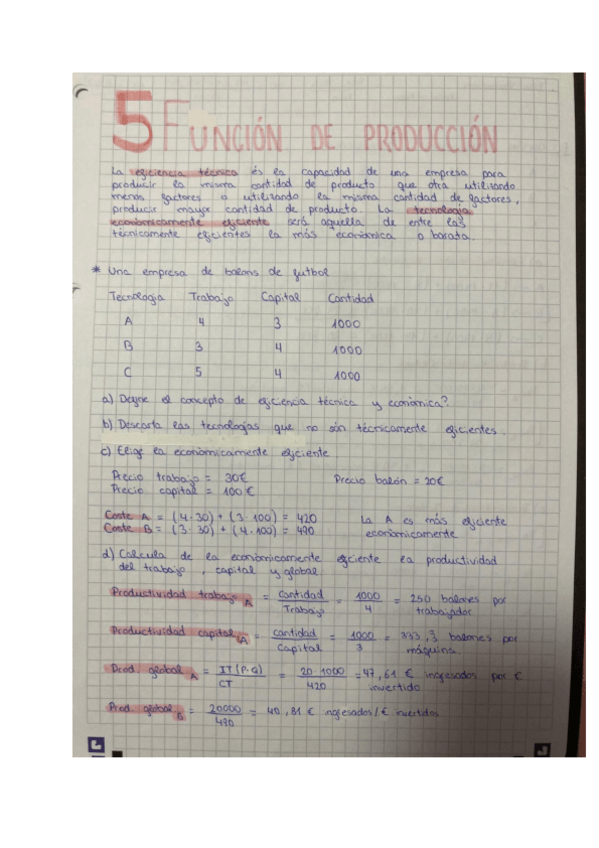 5 FUNCIÓN DE PRODUCCIÓN
La eficiencia técnica és la capacidad de una empresa para
producir la misma cantidad de producto que otra utilizando
menos factores o utilizando la misma cantidad de factores,
producir mayor cantidad de producto. La tecnología
económicamente eficiente será aquella de entre las
técnicamente eficientes la más económica o barata.
* Una empresa de balons de futbol
Tecnologia Trabajo Capital Cantidad
A 4 3 1000
B 3 4 1000
C 5 4 1000
a) Define el concepto de eficiencia técnica y económica?
b) Descarta las tecnologías que no són técnicamente eficientes.
c) Elige la económicamente eficiente.
Precio trabajo = 30€ Precio balón = 20€
Precio capital = 100€
Coste A = (4·30) + (3·100) = 420 La A es más eficiente
Coste B = (3·30) + (4·100) = 490 económicamente
d) Calcula de la económicamente eficiente la productividad
del trabajo, capital y global
Productividad trabajo A = Cantidad / Trabajo = 1000 / 4 = 250 balones por trabajador
Productividad capital A = cantidad / Capital = 1000 / 3 = 333,3 balones por máquina
Prod. global A = IT (P·Q) / CT = 20·1000 / 420 = 47,61 € ingresados por € invertido
Prod. global B = 20000 / 490 = 40,81 € ingesados/€ invertidos